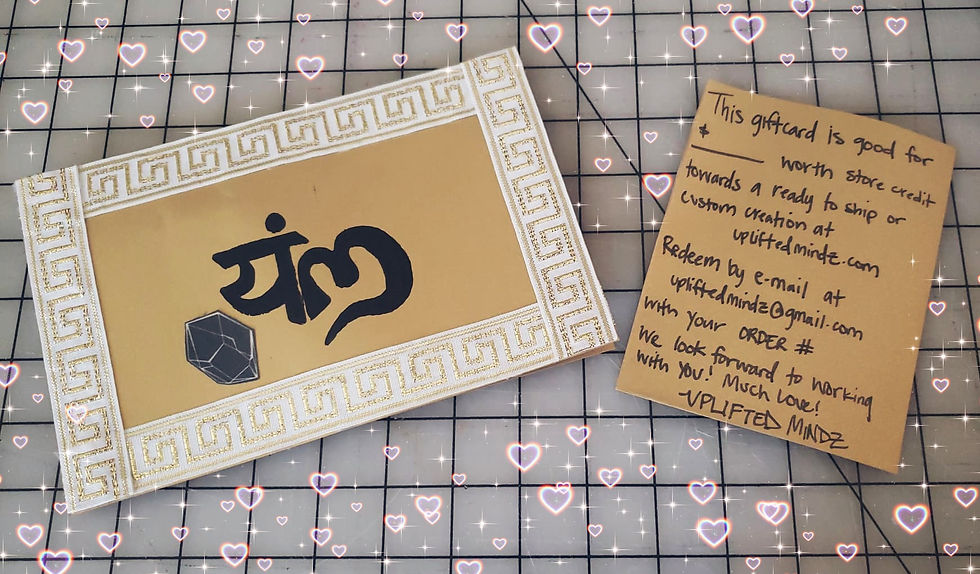 यं
This giftcard is good for
$______ worth store credit
towards a ready to ship or
custom creation at
upliftedmindz.com
Redeem by e-mail at
upliftedmindz@gmail.com
with your ORDER #
We look forward to working
with you! Much Love!
-UPLIFTED MINDZ